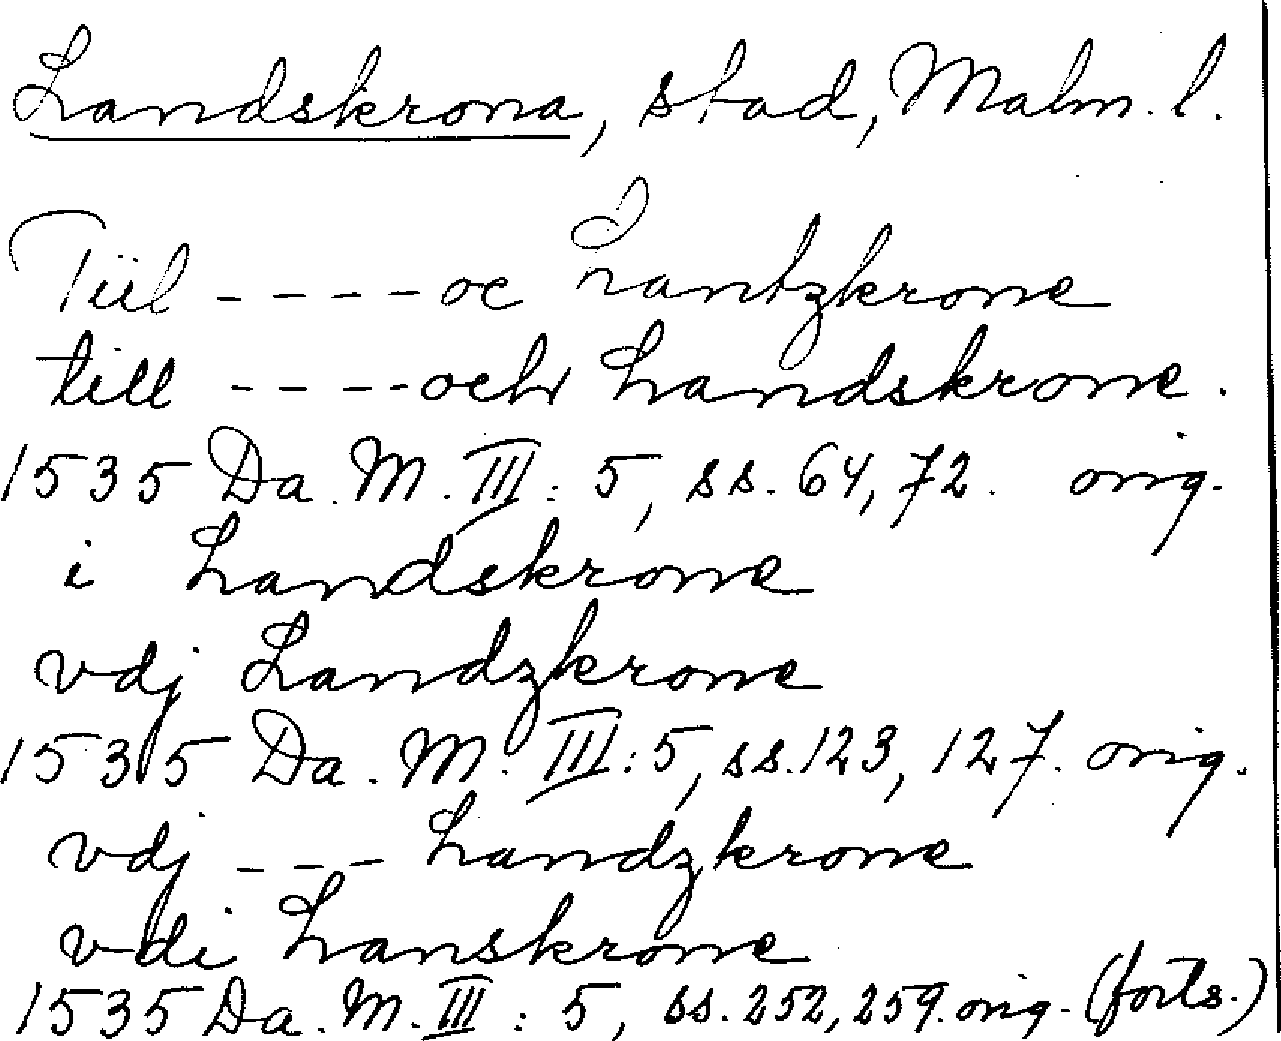 Landskrona, stad, Malm. l.
Tiil ---- oc Lantzkrone
till ---- och Landskrone.
1535 Da. M. III: 5, ss. 64, 72. orig.
i Landskrone
vdj Landzkrone
1535 Da. M. III: 5, ss. 123, 127. orig.
vdj --- Landzkrone
vdi Lanskrone
1535 Da. M. III: 5, ss. 252, 259. orig. (forts.)